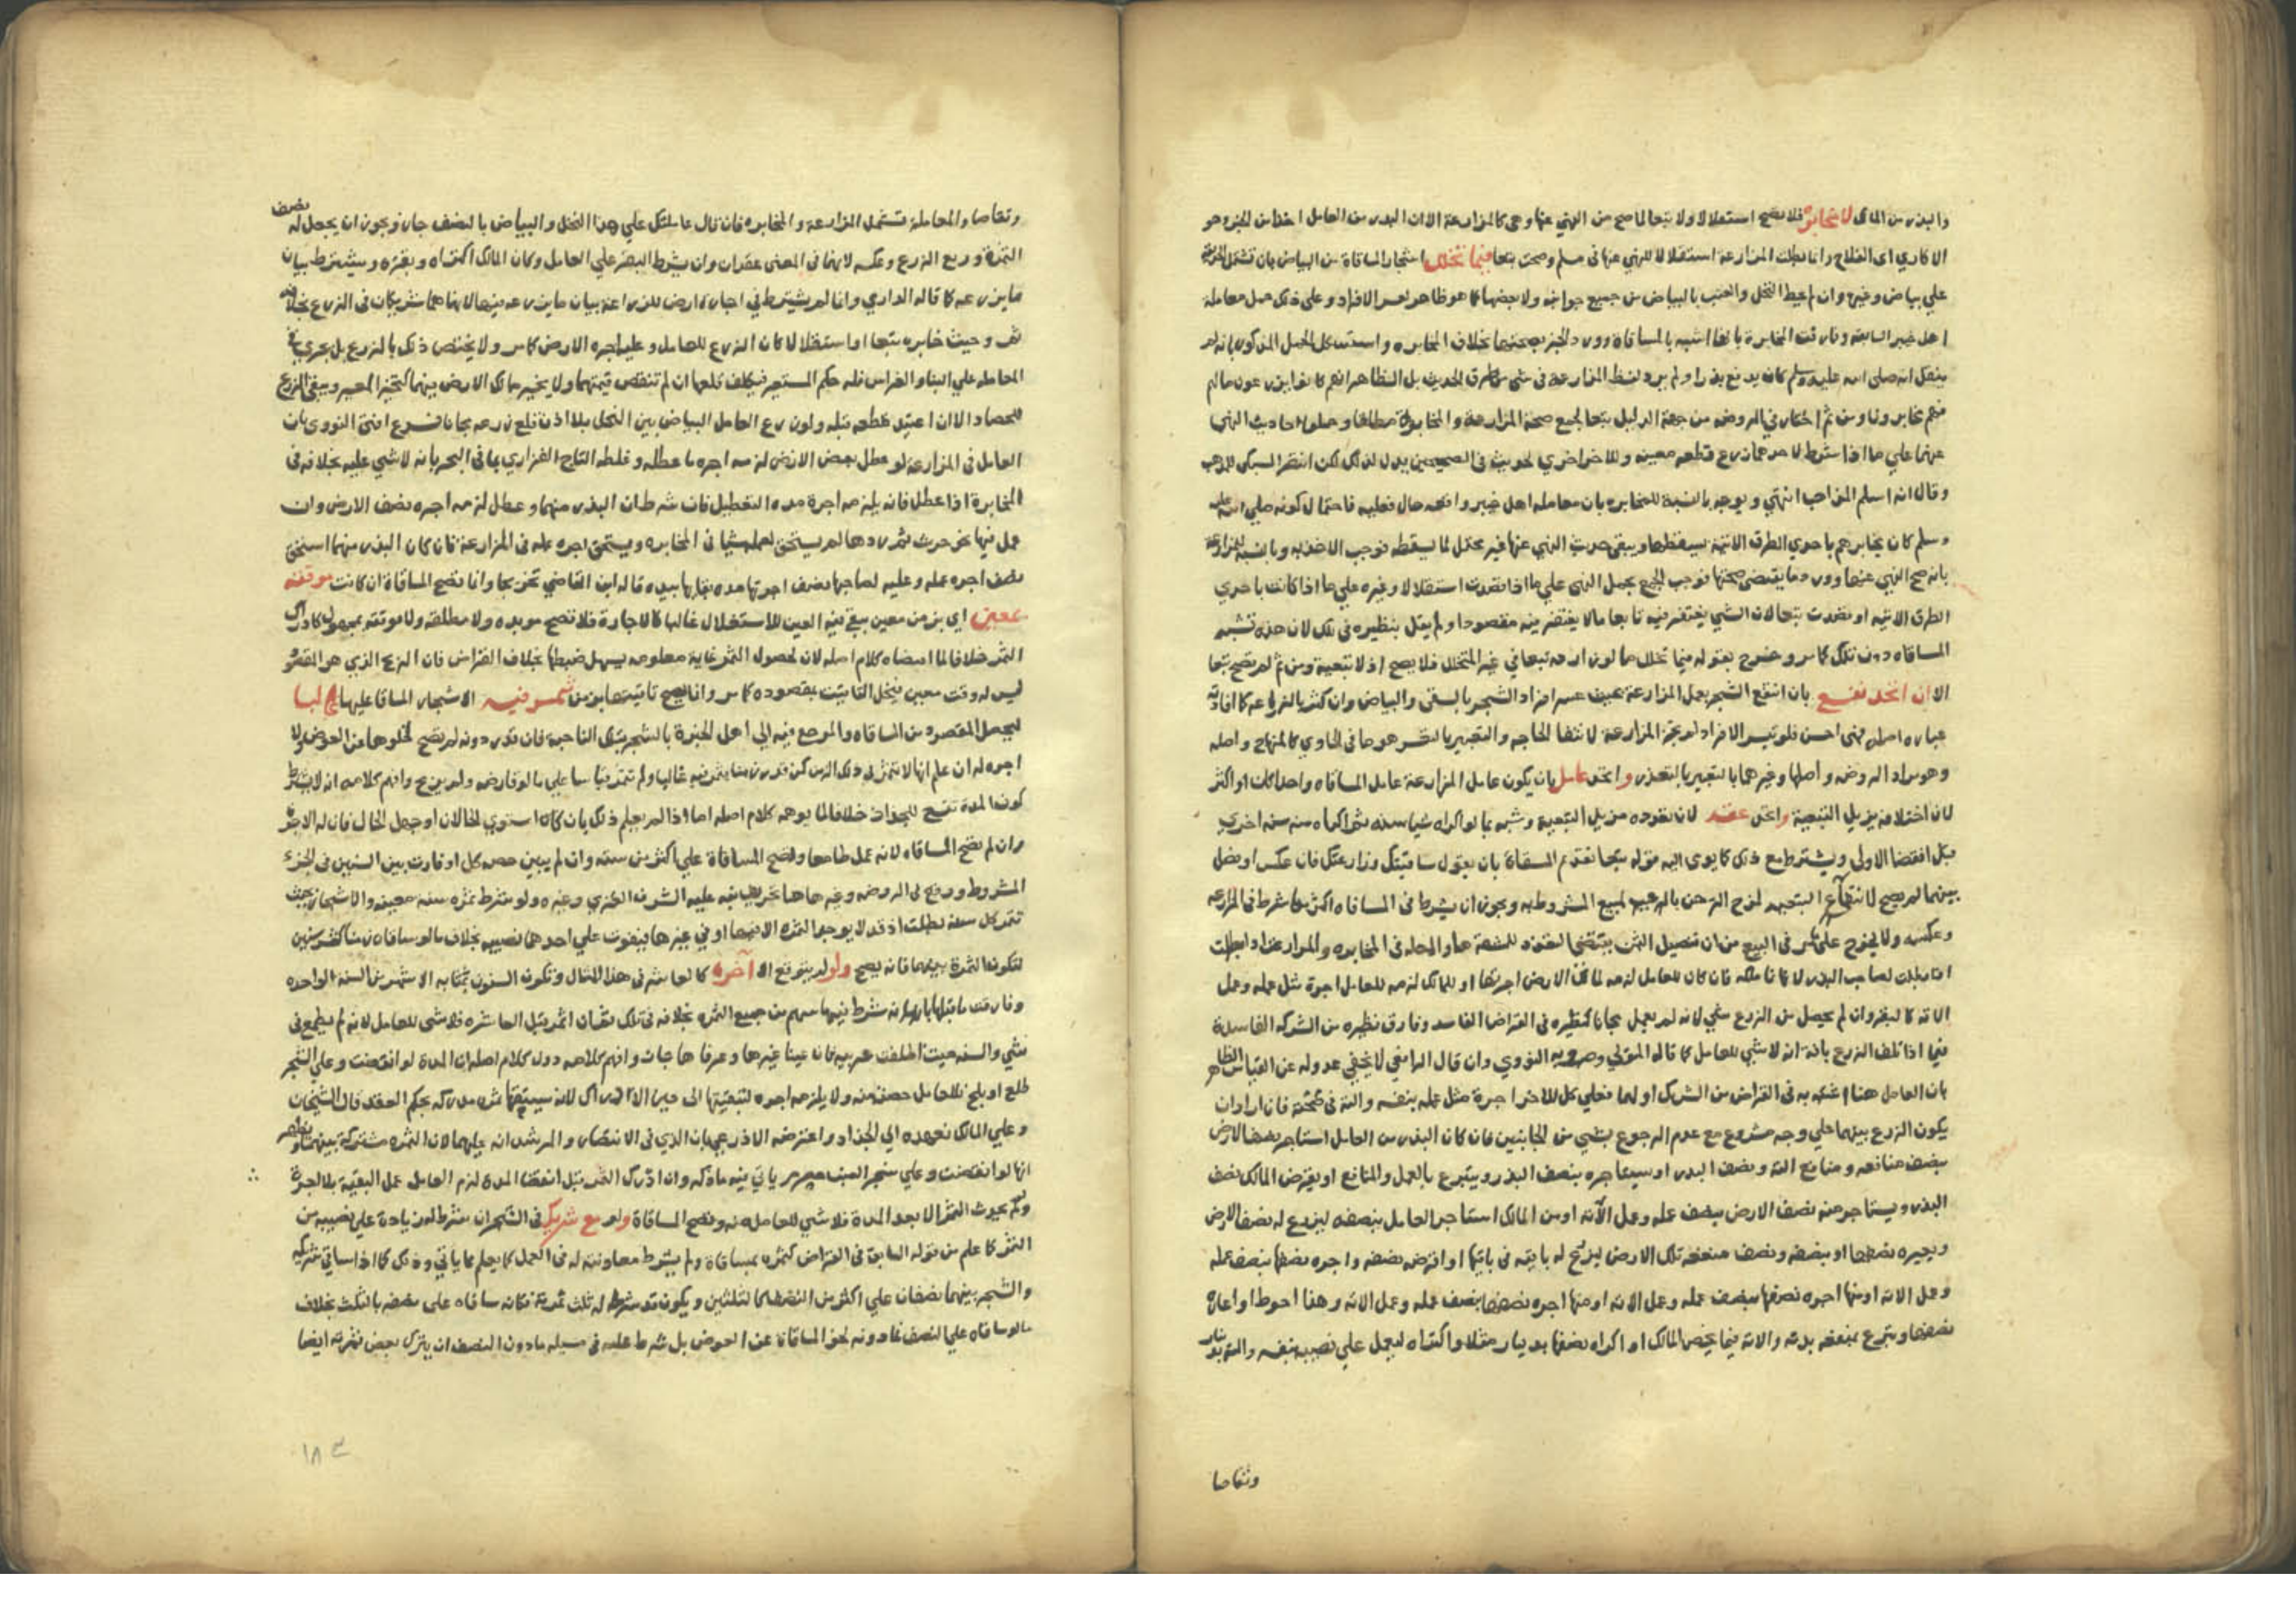 والبذر من المالك لا مخابرة فلا تصح استقلالا ولا تبعا لما صح من النهي عنها وهي كالمزارعة الا ان البذر من العامل اخذا من الخبر وهو
الاكاري اي الفلاح وانما بطلت المزارعة استقلالا للنهي عنها في مسلم وصحت تبعا فيما تخلل اشجار المساقاة من البياض بان تشتمل الحديقة
علي بياض وغيره وان لم يحط النخل والعنب بالبياض من جميع جوانبه ولا بعضها كما هو ظاهر لعسر الافراد وعلى ذلك حمل معاملة
اهل خيبر السابقة وفارقت المخابرة بانها اشبه بالمساقاة وورد الخبر بصحتها بخلاف المخابره واستشكل الحمل المذكور بانه لم
ينقل انه صلى الله عليه وسلم كان يدفع بذرا ولم يرد لفظ المزارعة في شي من طرق الحديث بل الظاهر انهم كانوا يزرعون من مالهم
فهم مخابرون ومن ثم اختار في الروضه من جهة الدليل تبعا لجمع صحة المزارعة والمخابرة مطلقا وحملوا احاديث النهي
عنها علي ما اذا شرط لاحدهما زرع قطعه معينه وللاخر اخري لحديث في الصحيحين يدل لذلك لكن انتصر السبكي للمذهب
وقال انه اسلم المذاهب انتهي ويوجه بالنسبة للمخابره بان معامله اهل خيبر واقعه حال فعليه فاحتمال كونه صلي الله عليه
وسلم كان يخابرهم باحدي الطرق الاتيه يسقطها ويبقى حديث النهي عنها غير محتمل لما يسقطه فوجب الاخذ به وبالنسبة للمزارعة
بانه صح النهي عنها وورد ما يقتضي صحتها فوجب الجمع بحمل النهي علي ما اذا تفردت استقلالا وغيره علي ما اذا كانت باحدي
الطرق الاتيه او تفردت تبعا لان الشي يغتفر فيه تابعا ما لا يغتفر فيه مقصودا ولم يقل بنظيره في تلك لان هذه تشبه
المساقاه دون تلك كما مر وخرج بقوله فيما تخلل ما لو زارعه تبعا في غير المتخلل فلا يصح اذ لا تبعية ومن ثم لم تصح تبعا
الا ان اتحد نفع بان انتفع الشجر بعمل المزارعة بحيث عسر افراد الشجر بالسقي والبياض وان كثر بالزراعه كما افادته
عباره اصله فهي احسن فلو تيسر الافراد لم تجز المزارعة لانتفا الحاجه والتعبير بالعسر هو ما في الحاوي كالمنهاج واصله
وهو مراد الروضه واصلها وغيرهما بالتعبير بالتعذر واتحد عامل بان يكون عامل المزارعة عامل المساقاه واحدا كان او اكثر
لان اختلافه يزيل التبعية واتحد عقد لان تعدده مزيل التبعية وشبه بما لو اكراه شيا سنه ثم اكراه منه سنه اخري
قبل انقضا الاولي ويشترط مع ذلك كما يومي اليه قوله تبعا تقدم المساقاة بان يقول ساقيتك وزارعتك فان عكس او فصل
بينهما لم يصح لانتفاء التبعيه
وعكسه ولا يخرج علي ما مر في البيع من ان تفصيل الثمن يقتضي التعدد للشبهة هنا والمحله في المخابره والمزارعة اذا بطلت
انما بطلت لصاحب البذر لانه نما ملكه فان كان للعامل لزمه لمالك الارض اجرتها او للمالك لزمه للعامل اجرة مثل عمله وعمل
الاته كالبقر وان لم يحصل من الزرع شي لانه لم يعمل مجانا كنظيره في القراض الفاسد وفارق نظيره من الشركه الفاسدة
فيما اذا تلف الزرع بافة انه لا شي للعامل كما قاله المتولي وصوبه النووي وان قال الرافعي لا يخفي عدوله عن القياس الظاهر
بان العامل هنا اشبه به في القراض من الشريك اولهما فعلي كل للاخر اجرة مثل عمله بنفسه والته في حصته فان ارادا ان
يكون الزرع بينهما علي وجه مشروع مع عدم الرجوع بشي من الجانبين فان كان البذر من العامل استاجر نصف الارض
بنصف منافعه ومنافع الته ونصف البذر او يستاجره بنصف البذر ويتبرع بالعمل والمنافع او يقرض المالك نصف
البذر ويستاجر منه نصف الارض بنصف عمله وعمل الاته او من المالك استاجر العامل بنصفه ليزرع له نصف الارض
ويعيره نصفها او بنصفه ونصف منفعه تلك الارض ليزرع له باقيه في باقيها او اقرضه نصفه واجره نصفها بنصف عمله
وعمل الاته او منهما اجره نصفها بنصف عمله وعمل الاته وهذا احوط او اعاره
نصفها ويتبرع بمنفعه بدنه والاته فيما يخص المالك او اكراه نصفها بدينار مثلا واكتراه ليعمل علي نصيبه بنفسه والته بدينار
وتقاصا
وتقاصا والمعاملة تشمل المزارعة والمخابره فان قال عاملتك علي هذا النخل والبياض بالنصف جاز ويجوز ان يجعل له نصف
الثمرة وربع الزرع وعكسه لانهما في المعنى عقدان وان يشرط البقر علي العامل وكان المالك اكتراه وبقره ويشترط بيان
ما يزرعه كما قاله الدارمي وانما لم يشترط في اجارة ارض للزراعة بيان ما يزرعه فيها لانهما هنا شريكان في الزرع بخلافه
ثم وحيث خابره تبعا او استقلالا كان الزرع للعامل وعليه اجره الارض كما مر ولا يختص ذلك بالزرع بل يجري في
المعامله علي البناء والغراس فله حكم المستعير فيكلف قلعها ان لم تنقص قيمتهما ولا يخير مالك الارض بينهما كتخير المعير ويبقي الزرع
للحصاد الا ان اعتيد قطعه قبله ولو زرع العامل البياض بين النخل بلا اذن قلع زرعه مجانا فرع افتى النووي بان
العامل في المزارعة لو عطل بعض الارض لزمه اجره ما عطله وغلطه التاج الفزاري بما في البحر بانه لا شي عليه بخلافه في
المخابرة اذا عطل فانه يلزمه اجرة مده التعطيل فان شرطا ان البذر منهما وعطل لزمه اجره نصف الارض وان
عمل فيها نحو حرث ثم ردها لم يستحق لعمله شيا في المخابره ويستحق اجره عمله في المزارعة فان كان البذر منهما استحق
نصف اجره عمله وعليه لصاحبها نصف اجرتها مده بقايها بيده قاله ابن القاضي تخريجا وانما تصح المساقاة ان كانت موقتة
بمعين اي بزمن معين يبقي فيه العين للاستغلال غالبا كالاجارة فلا تصح موبده ولا مطلقه ولا موقته بمجهول كادراك
الثمر خلافا لما اقتضاه كلام اصله لان لحصول الثمر غاية معلومه يسهل ضبطها بخلاف القراض فان الربح الذي هو المقصود
ليس له وقت معين فيخل التاقيت بمقصوده كما مر وانما يصح تاقيتها بزمن تثمر فيه الاشجار المساقا عليها غالبا
ليحصل المقصود من المساقاه والمرجع فيه الي اهل الخبرة بالشجر بتلك الناحية فان قدر دونه لم يصح لخلوها عن العوض ولا
اجره له ان علم انها لا تثمر في ذلك الزمن كمن قدر زمنا يثمر فيه غالبا ولم تثمر قياسا علي ما لو قارض ولم يربح وافهم كلامه انه لا يشترط
كون المدة تنتهي للجداد خلافا لما يوهمه كلام اصله اما اذا لم يعلم ذلك بان كان استوي الحالان او جهل الحال فان له الاجرة
وان لم تصح المساقاه لانه عمل طامعا وتصح المساقاة علي اكثر من سنه وان لم يبين حصه كل او فاوت بين السنين في الجزء
المشروط ووقع في الروضه وغيرها هنا تحريف نبه عليه الشرف الغزي وغيره ولو شرط ثمره سنه معينه والاشجار بحيث
تثمر كل سنة بطلت اذ قد لا يوجد الثمره الا فيها او في غيرها فيفوت علي احدهما نصيبه بخلاف ما لو ساقاه زمنا كعشر سنين
لتكون الثمرة بينهما فانه يصح ولو لم يتوقع الا آخره كالعاشره في هذا المثال وتكون السنون بمثابه الاشهر من السنة الواحده
وفارقت ما قبلها بانه شرط فيها سهم من جميع الثمره بخلافه في تلك فان اثمر قبل العاشره فلا شي للعامل لانه لم يطمع في
شي والسنه حيث اطلقت عربيه فان عينا غيرها وعرفاها جاز وافهم كلامه دون كلام اصله ان المدة لو انقضت وعلي الشجر
طلع او بلح فللعامل حصته منه ولا يلزمه اجره لتبقيتها الى حين الادراك لانه يستحقها ثمره مدركه بحكم العقد قال الشيخان
وعلي المالك تعهده الي الجذاذ واعترضه الاذرعي بان الذي في الانتصار والمرشد انه عليهما لان الثمره مشتركة بينهما وظاهر
انها لو انقضت وعلي شجر العنب حصرم ياتي فيه ما ذكر وان ادرك الثمر قبل انقضا المدة لزم العامل عمل البقية بلا اجرة
وان لم يحدث الثمر الا بعد المدة فلا شي للعامل منه وتصح المساقاة ولو مع شريك في الشجر ان شرط له زيادة علي نصيبه من
الثمر كما علم من قوله السابق في القراض كثمره بمساقاة ولم يشرط معاونته له في العمل كما يعلم مما ياتي وذلك كما اذا ساقي شريكه
والشجر بينهما نصفان علي اكثر من النصف كالثلثين ويكون قد شرط له ثلث ثمرته فكانه ساقاه على نصفه بالثلث بخلاف
ما لو ساقاه علي النصف فما دونه لخلو المساقاة عن العوض بل شرط عليه في مسيله ما دون النصف ان يترك بعض ثمرته ايضا